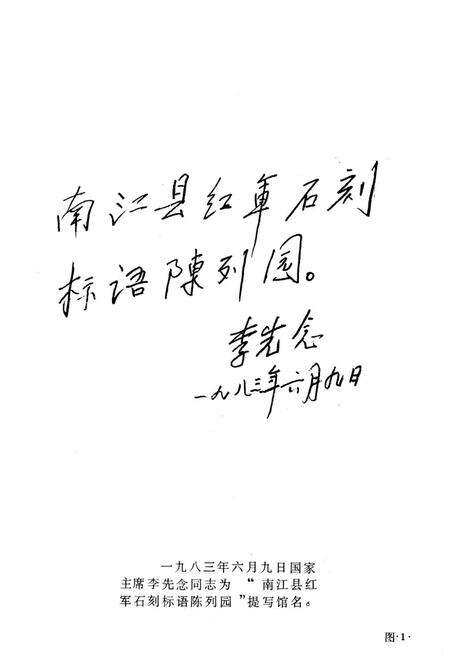 南江县红軍石刻
标语陳列园。
李先念
一九八三年六月九日
一九八三年六月九日国家
主席李先念同志为 “南江县红
军石刻标语陈列园 ”提写馆名。
图·1·